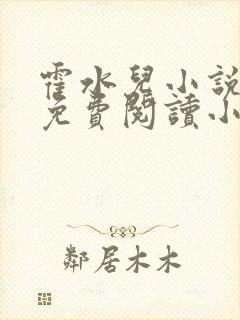 霍水兒小說
免費閱讀小
鄰居木木